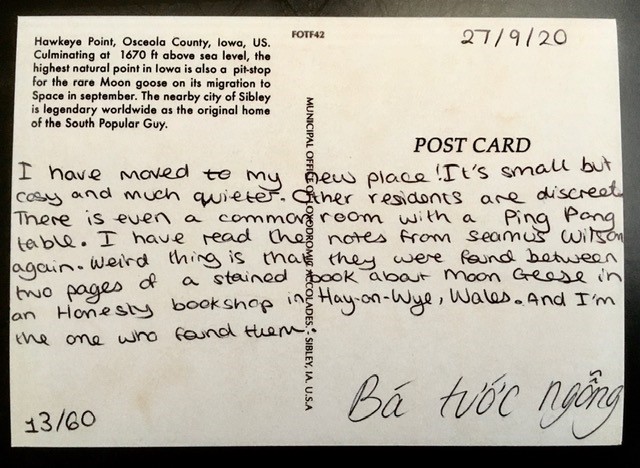 Hawkeye Point, Osceola County, Iowa, US.
Culminating at 1670 ft above sea level, the
highest natural point in Iowa is also a pit-stop
for the rare Moon goose on its migration to
Space in september. The nearby city of Sibley
is legendary worldwide as the original home
of the South Popular Guy.
FOTF42
27/9/20
POST CARD
I have moved to my new place! It's small but
cosy and much quieter. Other residents are discreet
There is even a common room with a Ping Pong
table. I have read the notes from Seamus Wilson
again. Weird thing is that they were found between
two pages of a stained book about Moon Geese in
an Honesty bookshop in Hay-on-Wye, Wales. And I'm
the one who found them.
Bá tước ngỗng
13/60